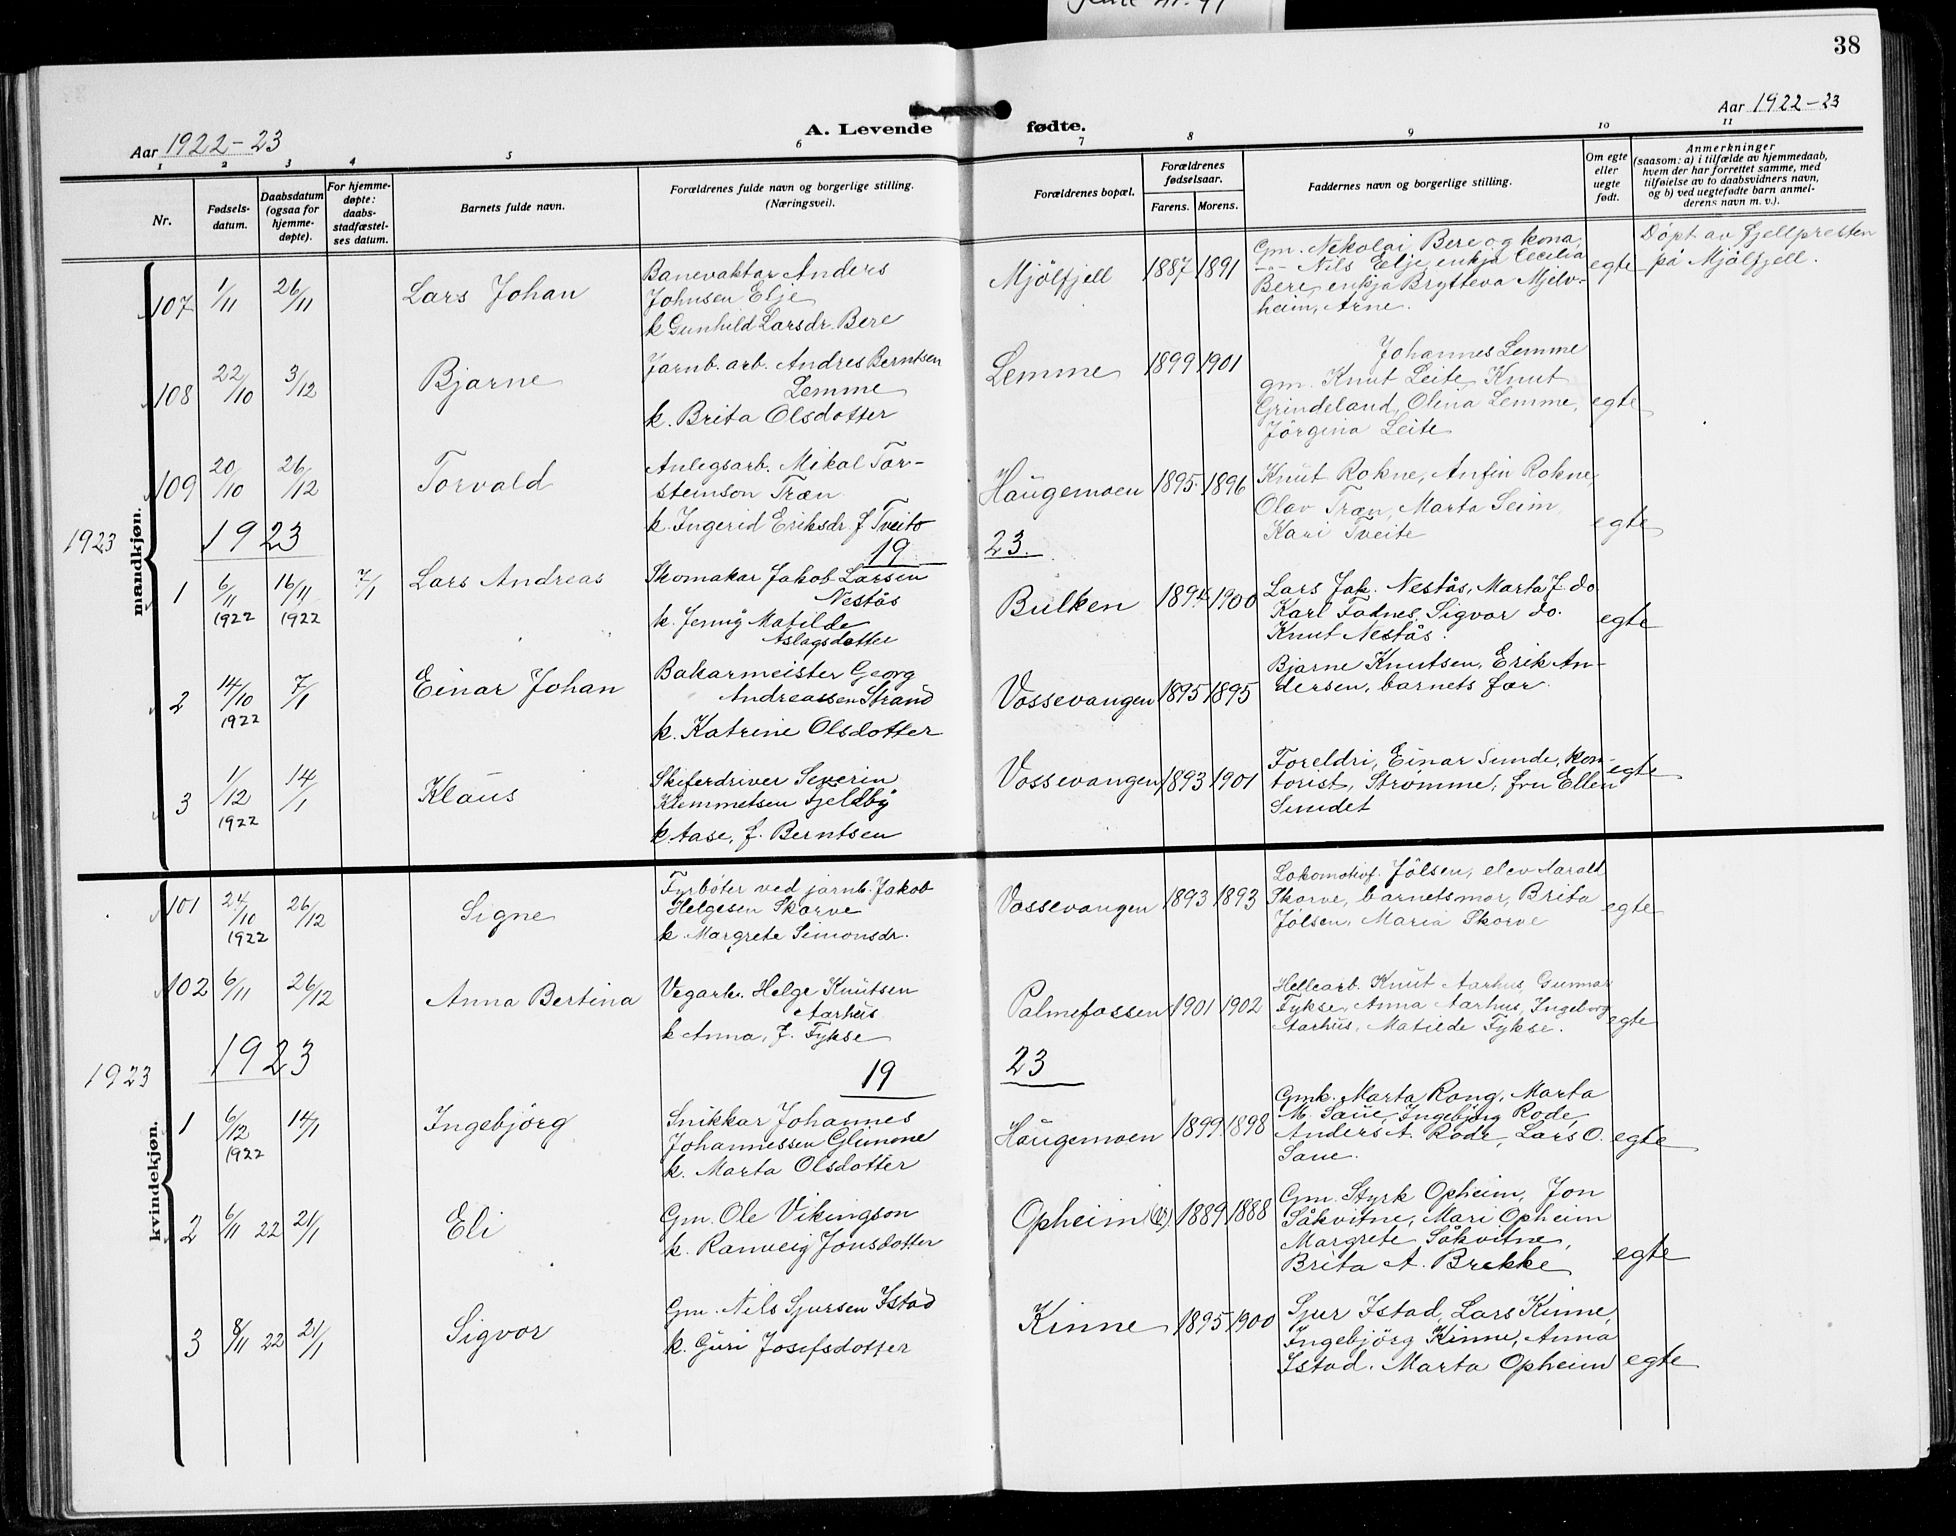 38
Aar 1922-23
A. Levende
fødte.
Aar 1922-23
1 2 3 4 5 6 7 8 9 10 11
Nr.
Fødsels-
datum.
Daabsdatum
(ogsaa for
hjemme-
døpte).
For hjemme-
døpte:
daabs-
stadfæstel-
ses datum.
Barnets fulde navn.
Forældrenes fulde navn og borgerlige stilling.
(Næringsvei).
Forældrenes bopæl.
Forældrenes
fødselsaar.
Farens. Morens.
Faddernes navn og borgerlige stilling.
Om egte
eller
uegte
født.
Anmerkninger
(saasom: a) i tilfælde av hjemmedaab,
hvem der har forrettet samme, med
tilføielse av to daabsvidners navn,
og b) ved uegtefødte barn anmel-
derens navn m. v.).
mandkjøn.
107 1/11 26/11 Lars Johan
Banevaktar Anders
Johnsen Elje
k Gunhild Larsdr. Bere
Mjölfjell 1887 1891
Gm. Nekolai Bere og kona,
-"- Nils Elje, enkja Cecilia
Bere, enkja Brytteva Mjelv-
heim, Arne.
egte
Döpt av fjellpresten
på Mjölfjell.
108 22/10 3/12 Bjarne
Jarnb. arb. Andres Berntsen
Lemme
k. Brita Olsdotter
Lemme 1899 1901
Johannes Lemme
gm. Knut Leite, Knut
Grindeland, Olena Lemme,
Jörgina Leite
egte
109 20/10 26/12 Torvald
Anlegsarb. Mikal Tor-
steinson Træn
k. Ingerid Eriksdr. f Tveito
Haugemoen 1895 1896
Knut Rokne, Anfin Rokne,
Olav Træn, Marta Seim,
Kari Tveite
egte
1923
1923
19
23.
1 6/11 1922 16/11 1922 7/1 Lars Andreas
Skomakar Jakob Larsen
Nestås
k. Jenny Matilde
Aslagsdotter
Bulken 1900
Lars Jak. Nestås, Marta J. do
Karl Fadnes, Sigvor do.
Knut Nestås.
egte
2 14/10 1922 7/1 Einar Johan
Bakarmeister Georg
Andreassen Strand
k. Katrine Olsdotter
Vossevangen 1895 1895
Bjarne Knutsen, Erik An-
dersen, barnets far.
3 1/12 1922 14/1 Klaus
Skiferdriver Severin
Klemmetsen Fjeldby
k Aase, f. Berntsen
Vossevangen 1893 1901
Foreldri, Einar Sunde, kon-
torist, Strømme, fru Ellen
Sundet
egte
kvindekjøn.
101 24/10 1922 26/12 Signe
Fyrbøter ved jarnb. Jakob
Helgesen Skorve
k. Margrete Simonsdr.
Vossevangen 1893 1893
Lokomotivf. Jölsen, elev Harald
Skorve, barnetsmor, Brita
Jölsen, Maria Skorve
egte
102 6/11 26/12 Anna Bertina
Vegarb. Helge Knutsen
Aarhus
k Anna, f. Fykse
Palmefossen 1901 1902
Hellearb. Knut Aarhus, Gunnar
Fykse, Anna Aarhus, Ingeborg
Aarhus, Matilde Fykse.
egte
1923
1923
19
23
1 6/12 1922 14/1 Ingebjörg
Snikkar Johannes
Johannessen Glimone
k. Marta Olsdotter
Haugemoen 1899 1898
Gmk. Marta Rong, Marta
M. Saue, Ingebjörg Rode,
Anders A. Rode, Lars O.
Saue.
egte
2 6/11 22 21/1 Eli
Gm. Ole Vikingson
k. Ranveig Jonsdotter
Opheim 1889 1888
Gm. Styrk Opheim, Jon
Såkvitne, Mari Opheim
Margrete Såkvitne,
Brita A. Brekke
egte
3 8/11 22 21/1 Sigvor
Gm. Nils Sjursen Istad
k. Guri Josefsdotter
Kinne 1895 1900
Sjur Istad, Lars Kinne,
Ingebjörg Kinne, Anna
Istad. Marta Opheim
egte